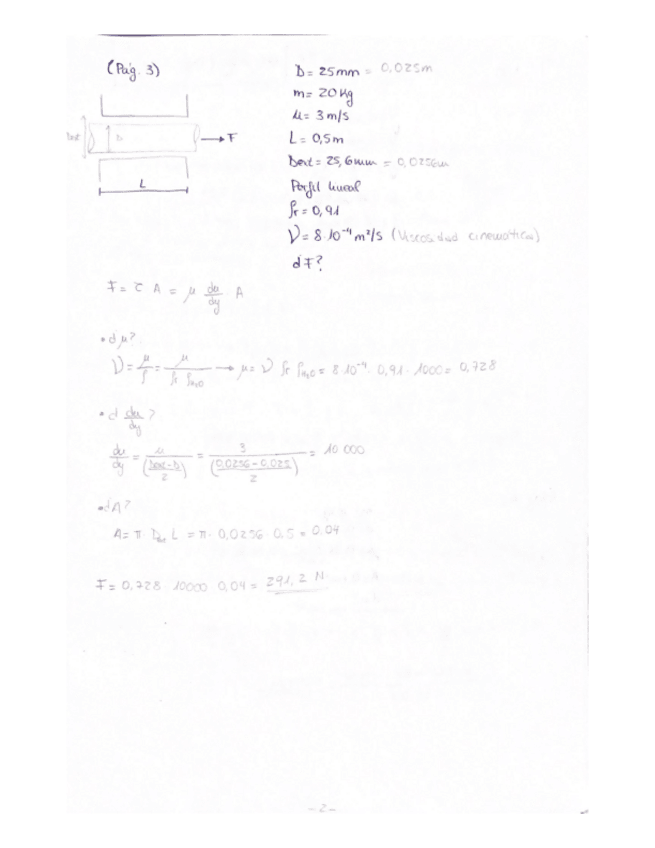 (Pág. 3)
D = 25 mm = 0,025 m
m = 20 Kg
u = 3 m/s
L = 0,5 m
Dext = 25,6 mm = 0,0256 m
Perfil lineal
ρr = 0,91
ν = 8·10⁻⁴ m²/s (Viscosidad cinemática)
d F?
Dext
D
F
L
F = τ A = μ du/dy · A
• d μ?
ν = μ/ρ = μ/(ρr ρH₂O) → μ = ν ρr ρH₂O = 8·10⁻⁴ · 0,91 · 1000 = 0,728
• d du/dy ?
du/dy = u/((Dext-D)/2) = 3/((0,0256-0,025)/2) = 10 000
• d A?
A = π D L = π · 0,0256 · 0,5 = 0,04
F = 0,728 · 10000 · 0,04 = 291,2 N
- 2 -